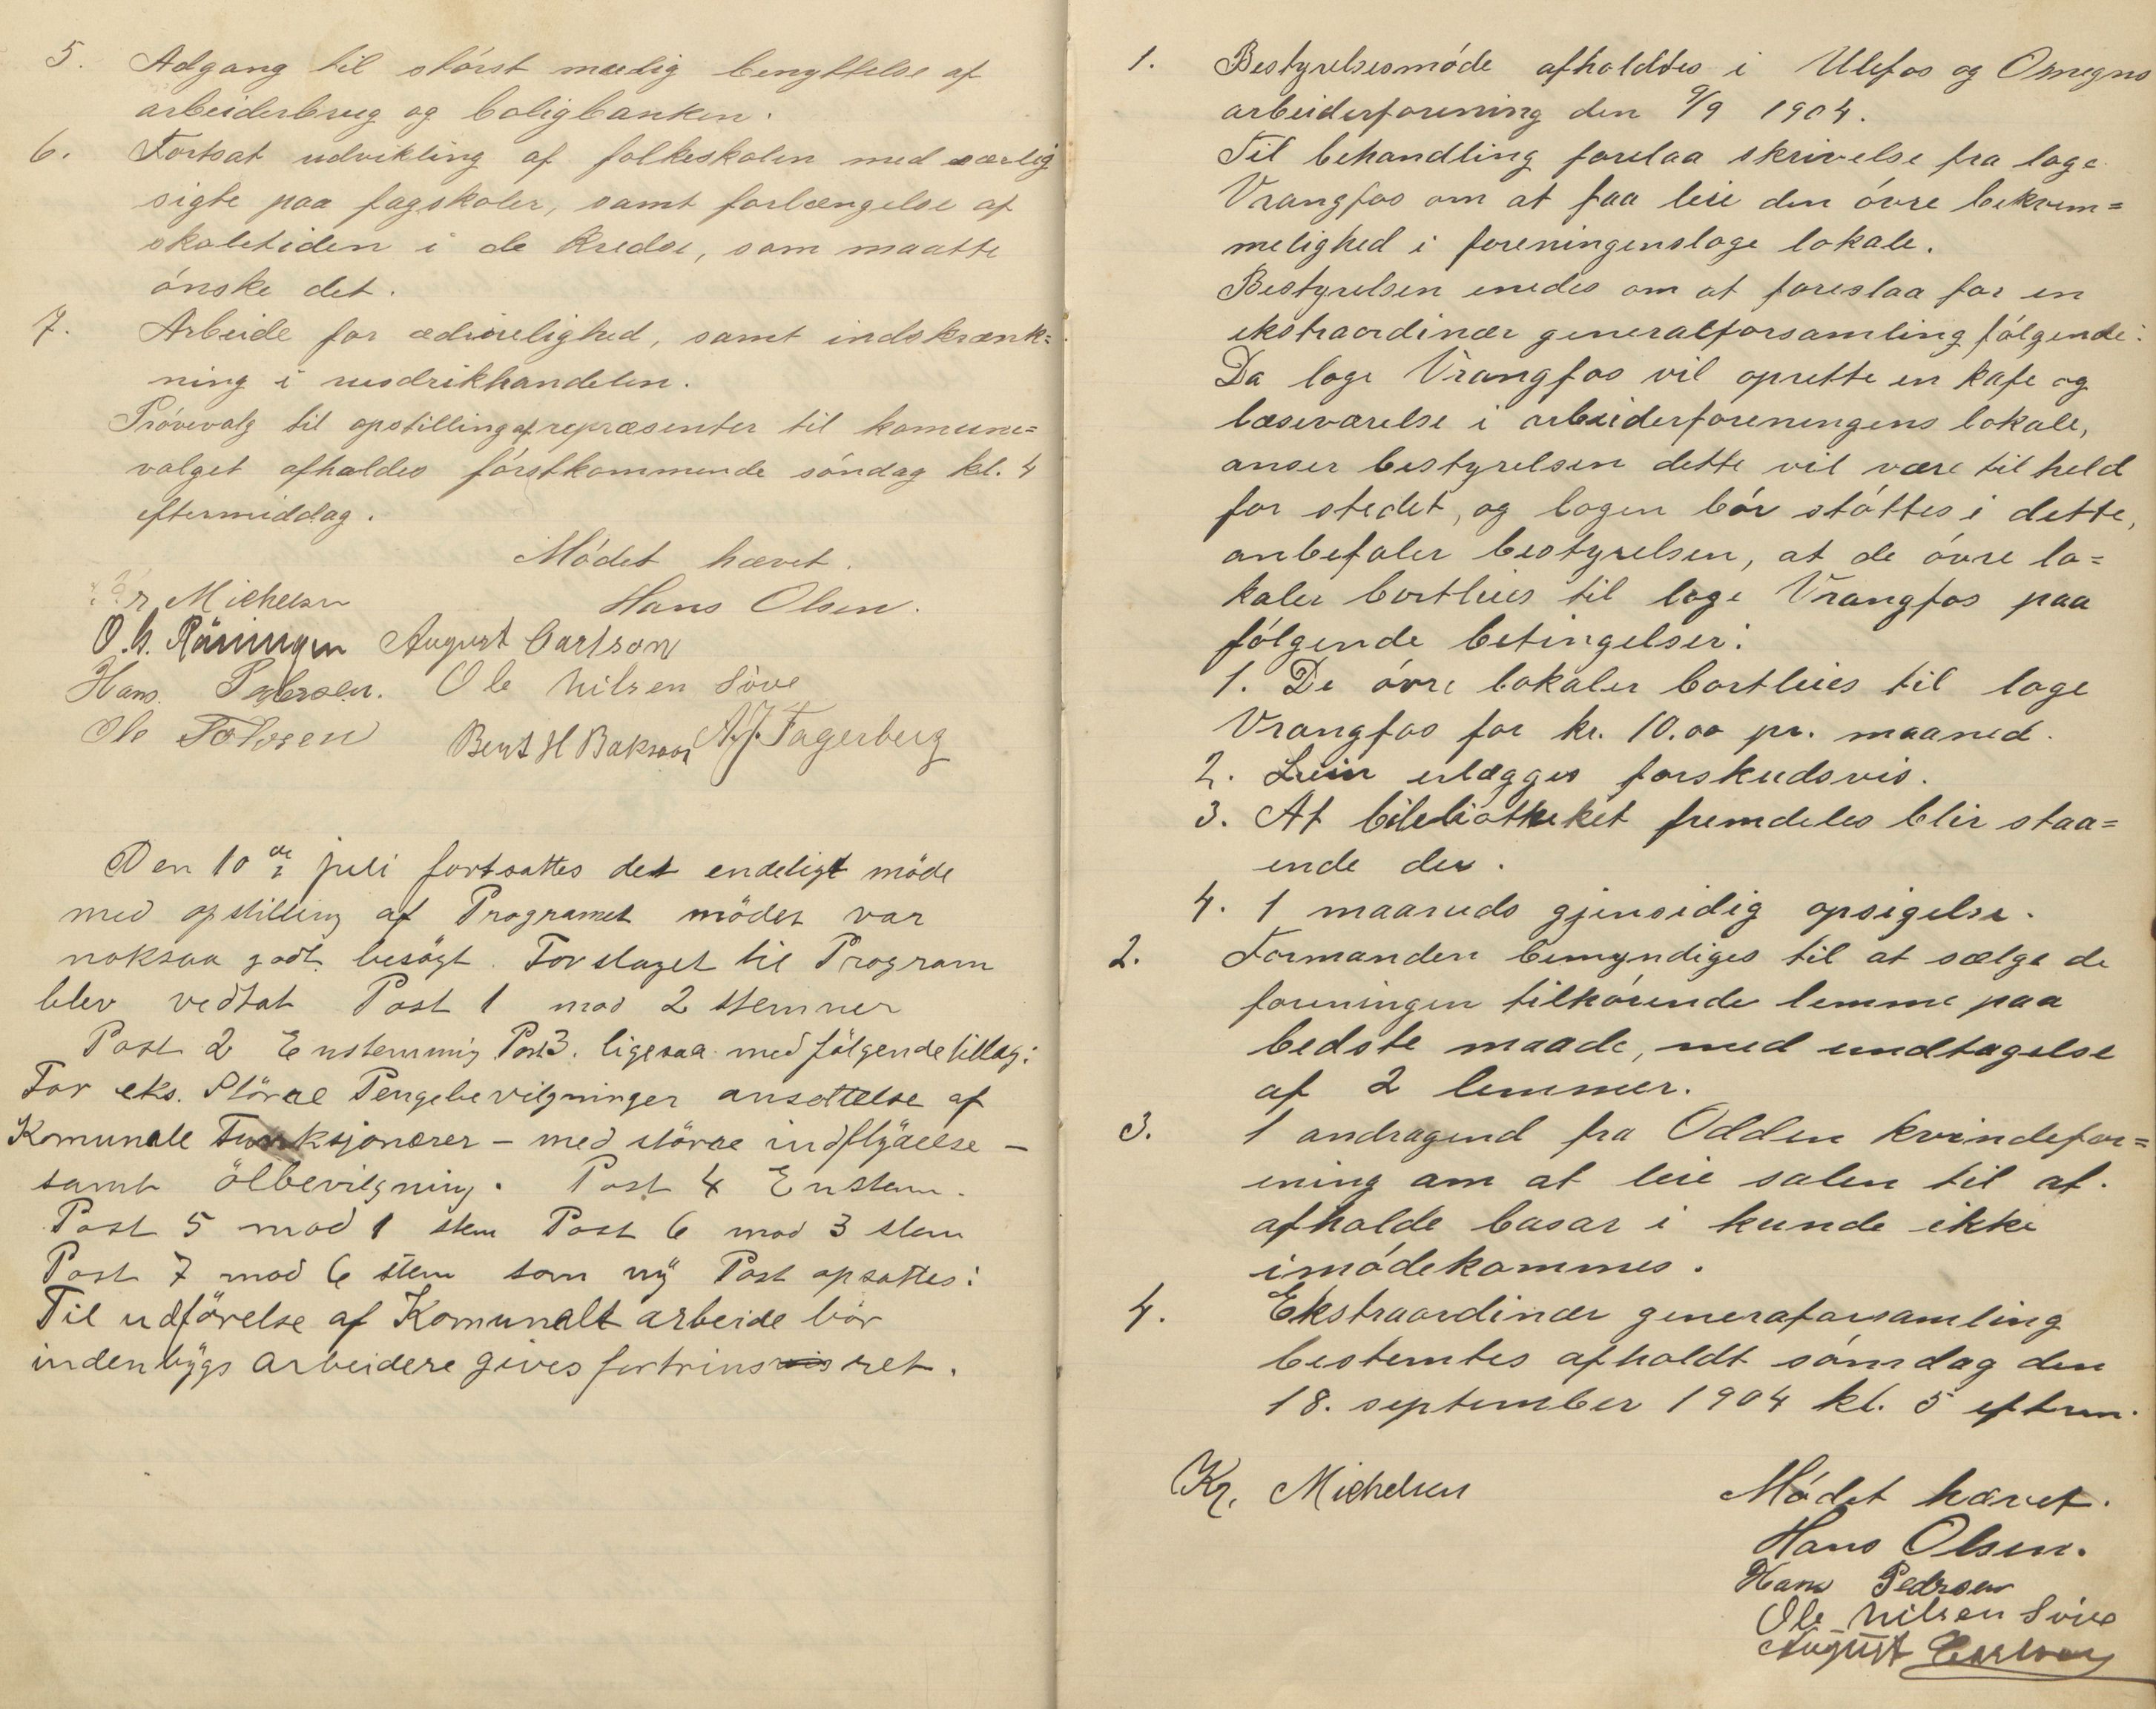 5. Adgang til størst mulig benyttelse af
arbeiderbrug og boligbanken.
6. Fortsat udvikling af folkeskolen med særlig
sigte paa fagskoler, samt forlængelse af
skoletiden i de kredse, som maatte
ónske det.
7. Arbeide for ædruelighed, samt indskrænk=
ning i rusdrikhandelen.
Próvevalg til opstilling af repræsenter til komune=
valget afholdes fórstkommende sóndag kl. 4
eftermiddag.
Módet hævet.
Kr Michelsen Hans Olsen.
O. H. Räningen August Carlson
Hans Pedersen. Ole Nilsen Söve
Ole Tolvsen Bent H Bakken A. J. Fagerberg
Den 10de juli fortsattes det endeligt möde
med opstilling af Programet mödet var
noksaa godt besögt. Forslaget til Program
blev vedtat Post 1 mod 2 stemner
Post 2 Enstemmig Post 3. ligesaa med fölgende tillæg:
For eks. Större Pengebevilgninger ansettelse af
Komunale Funksjonærer – med större indflydelse –
samt ölbevilgning. Post 4 Enstem.
Post 5 mod 1 stem Post 6 mod 3 stem
Post 7 mod 6 stem som ny Post opsattes:
Til udförelse af Komunalt arbeide bör
indenbygs arbeidere gives fortrinsvis ret.
1. Bestyrelsesmóde afholdtes i Ulefos og Omegns
arbeiderforening den 9/9 1904.
Til behandling forelaa skrivelse fra loge
Vrangfos om at faa leie den óvre bekvem=
melighed i foreningensloge lokale.
Bestyrelsen enedes om at foreslaa for en
ekstraordinær generalforsamling fólgende:
Da loge Vrangfos vil oprette en kafe og
læseværelse i arbeiderforeningens lokale,
anser bestyrelsen dette vil være til held
for stedet, og logen bór stóttes i dette,
anbefaler bestyrelsen, at de óvre lo=
kaler bortleies til loge Vrangfos paa
fólgende betingelser:
1. De óvre lokaler bortleies til loge
Vrangfos for kr. 10.00 pr. maaned.
2. Leien erlægges forskudsvis.
3. At bibliotheket fremdeles blir staa=
ende der.
4. 1 maaneds gjensidig opsigelse.
2. Formanden bemyndiges til at sælge de
foreningen tilhórende lemme paa
bedste maade, med undtagelse
af 2 lemmer.
3. 1 andragend fra Odden kvindefor=
ening om at leie salen til at.
afholde basar i kunde ikke
imódekommes.
4. Ekstraordinær generaforsamling
bestemtes afholdt sóndag den
18. september 1904 kl. 5 efterm.
Kr. Michelsen Módet hævet.
Hans Olsen.
Hans Pedrsen
Ole Nilsen Söve
August Carlson